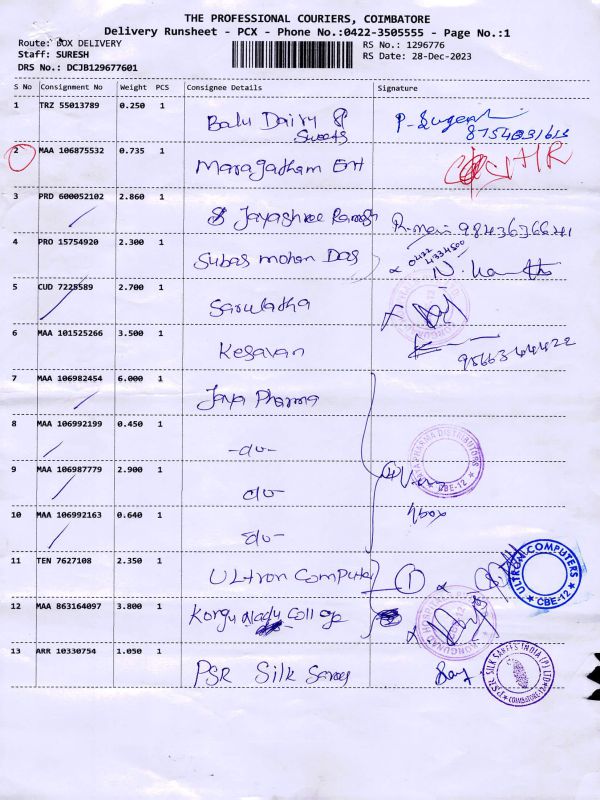 THE PROFESSIONAL COURIERS, COIMBATORE
Delivery Runsheet - PCX - Phone No.:0422-3505555 - Page No.:1
Route: BOX DELIVERY
RS No.: 1296776
Staff: SURESH
RS Date: 28-Dec-2023
DRS No.: DCJB129677601
S No Consignment No Weight PCS Consignee Details Signature
1 TRZ 55013789 0.250 1 Balu Dairy & Sweets
2 MAA 106875532 0.735 1 Maragatham Ent
3 PRD 600052102 2.860 1 Jayashree Ramesh
4 PRO 15754920 2.300 1 Subas mohan Das
0422
4334500
5 CUD 7225589 2.700 1 Sarulatha
6 MAA 101525266 3.500 1 Kesavan
7 MAA 106982454 6.000 1 Jaya Pharma
8 MAA 106992199 0.450 1 -do-
9 MAA 106987779 2.900 1 do-
JAYA PHARMA DISTRIBUTORS
CBE-12
10 MAA 106992163 0.640 1 do-
4box
11 TEN 7627108 2.350 1 ULtron Computer 1
ULTRON COMPUTERS
CBE-12
12 MAA 863164097 3.800 1 Kongu Nadu College
13 ARR 10330754 1.050 1 PSR Silk Sarees
P.S.R. SILK SAREES INDIA (P) LTD
COIMBATORE-12